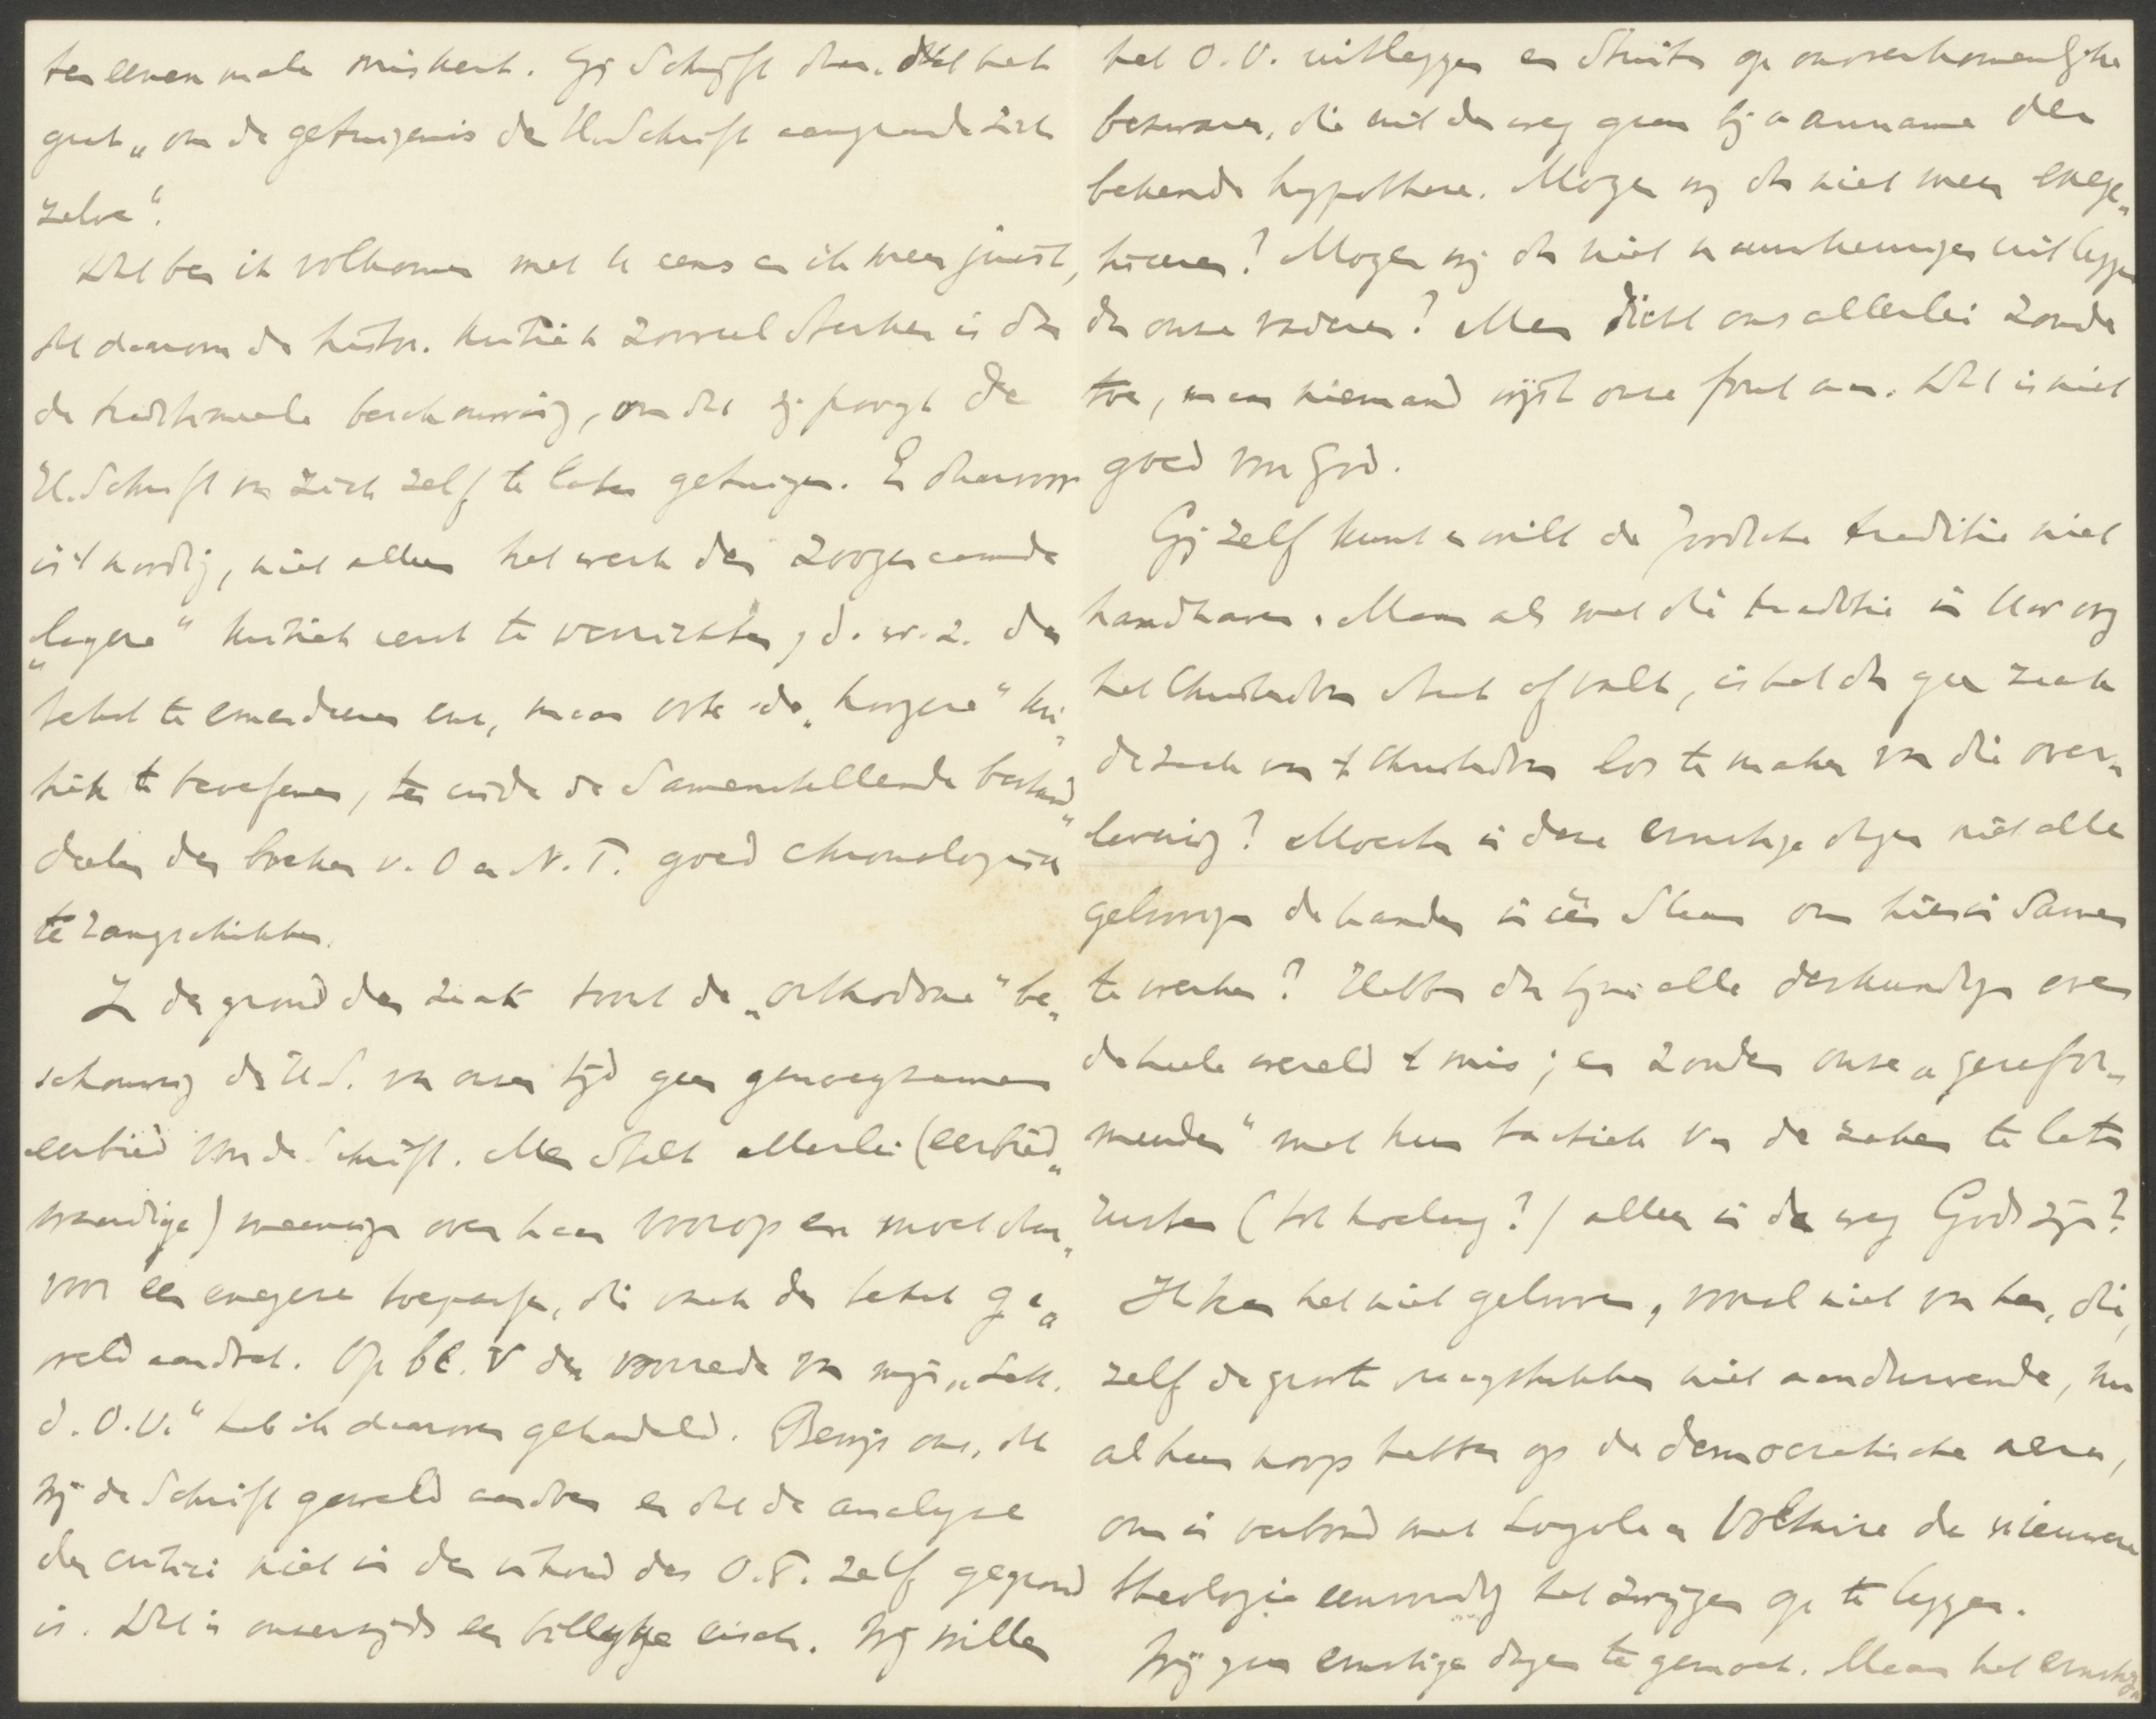 ten eenen male miskent. Gij schrijft dan, dat het
gaat „om de getuigenis der H. Schrift aangaande zich
zelve“.
Dat ben ik volkomen met U eens en ik meen juist,
dat daarom de histor. kritiek zooveel sterker is dan
de traditioneele beschouwing, omdat zij poogt de
H. Schrift van zich zelf te laten getuigen. En daarvoor
is 't noodig, niet alleen het werk der zoogenaamde
„lagere“ kritiek eerst te verrichten, d.w.z. den
tekst te emendeeren enz., maar ook de „hoogere“ kri„
tiek te beoefenen, ten einde de samenstellende bestand„
deelen der boeken v. O en N.T. goed chronologisch
te rangschikken.
In den grond der zaak toont de „orthodoxe“ be„
schouwing der H.S. van onzen tijd geen genoegzamen
eerbied voor de Schrift. Men stelt allerlei (eerbied„
waardige) meeningen over haar voorop en moet daar„
voor een exegese toepassen, die vaak den tekst ge„
weld aandoet. Op bl. V der voorrede van mijn „Lett.
d. O.V.“ heb ik daarover gehandeld. Bewijs ons, dat
wij de Schrift geweld aandoen en dat de analyse
der critici niet in den inhoud des O.T. zelf gegrond
is. Dat is onzerzijds een billijke eisch. Wij willen
het O.V. uitleggen en stuiten op onoverkomenlijke
bezwaren, die uit den weg gaan bij aanname der
bekende hypothese. Mogen wij dan niet meer exege„
tiseeren? Mogen wij dan niet nauwkeuriger uitleggen
dan onze vaderen? Men dicht ons allerlei zonde
toe, maar niemand wijst onze fout aan. Dat is niet
goed voor God.
Gij zelf kunt en wilt de Joodsche traditie niet
handhaven. Maar als met die traditie in Uw oog
het Christendom staat of valt, is het dan geen zaak
de zaak van 't Christendom los te maken van die over„
levering? Moesten in deze ernstige dagen niet alle
geloovigen de handen in één slaan om hierin samen
te werken? Hebben dan bijna alle deskundigen over
de heele wereld 't mis; en zouden onze „gerefor„
meerden“ met hun tactiek van de zaken te laten
rusten (tot hoelang?) alleen in den weg Gods zijn?
Ik kan het niet gelooven, vooral niet van hen, die,
zelf de groote vraagstukken niet aandurvende, nu
al hun hoop hebben op de democratische aera,
om in verbond met Loyola en Voltaire de nieuwere
theologie eenvoudig het zwijgen op te leggen.
Wij gaan ernstige dagen te gemoet. Maar het ernstigst